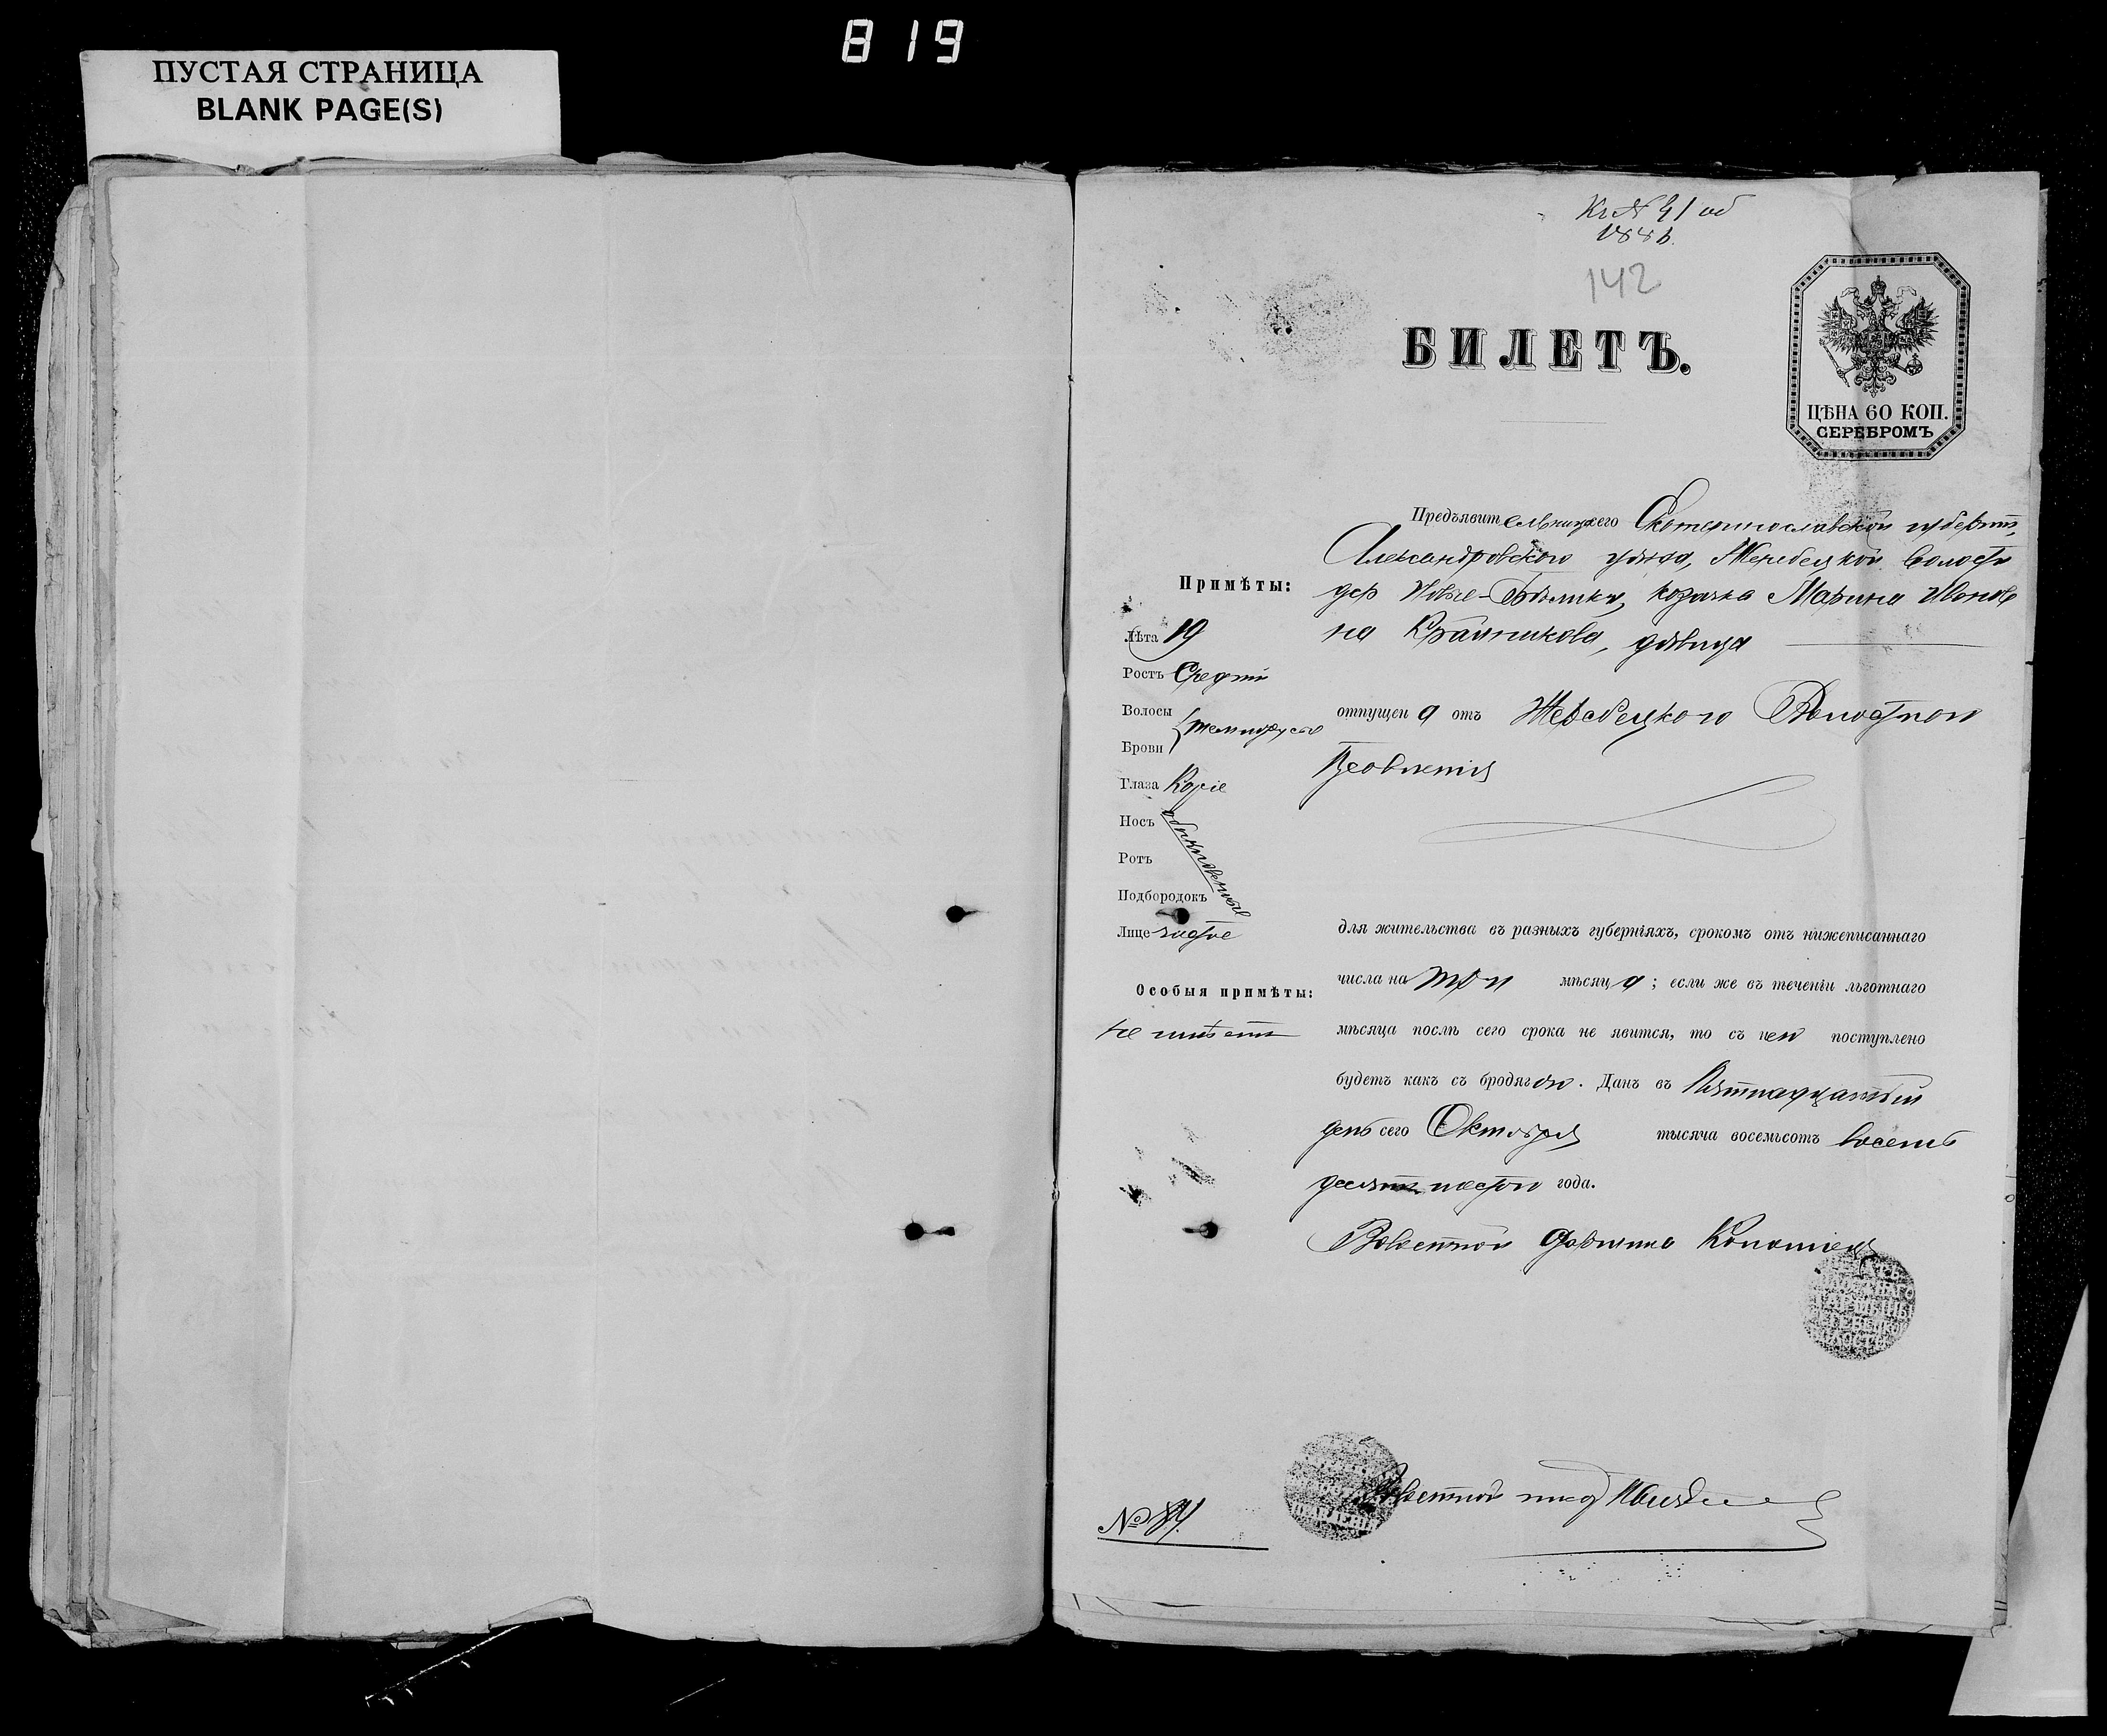 819
ПУСТАЯ СТРАНИЦА
BLANK PAGE(S)
142
БИЛЕТЪ.
ЦѢНА 60 КОП.
СЕРЕБРОМЪ
Предъявительница сего Екатеринославской губерніи,
Александровского уѣзда, Жеребецкой волости
дер Ново-, козачка Марина Иванов
на, дѣвица
Примѣты:
Лѣта 19
Ростъ Средній
Волосы
темнорусые
Брови
Глаза Каріе
Носъ
Ротъ
обыкновенные
Подбородокъ
Лице чистое
Особыя примѣты:
не имѣетъ
отпущена отъ Жеребецкого Волостнои
Правленія
для жительства въ разныхъ губерніяхъ, срокомъ отъ нижеписаннаго
числа на три мѣсяца; если же въ теченіи льготнаго
мѣсяца послѣ сего срока не явится, то съ нею поступлено
будетъ какъ съ бродягою. Данъ въ Пятнадцатый
день сего Октября тысяча восемьсотъ восемь
десятъ шестои года.
Волостной Старшина
№ 84
Волостной